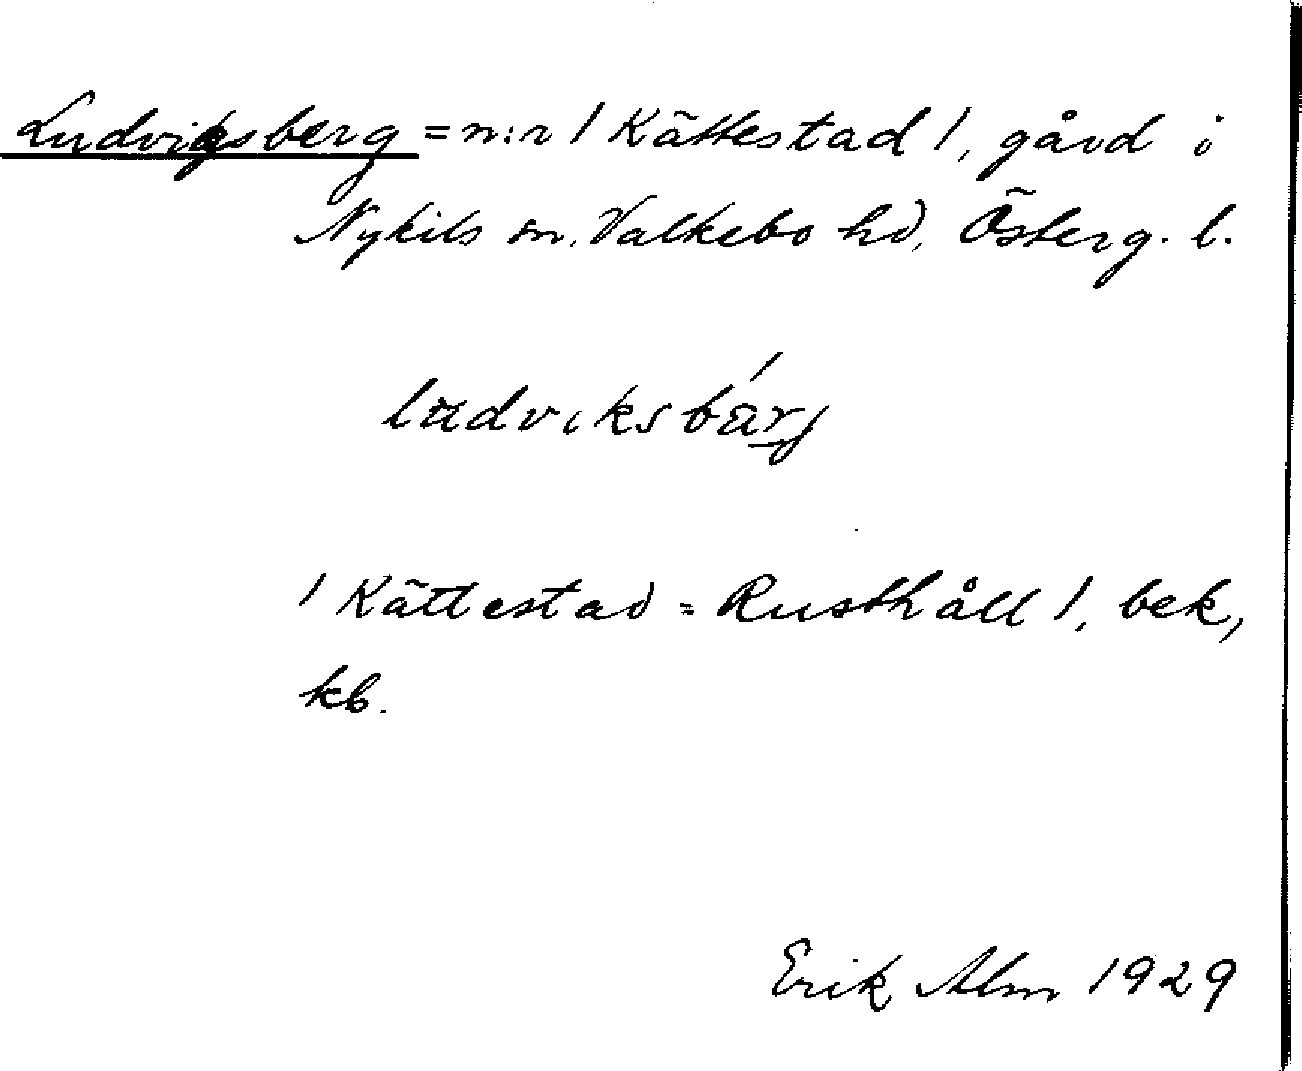 Ludvigsberg = n:r 1 Kättestad 1, gård i
Nykils sn. Valkebo hd, Österg. l.
ludviksbärj
1 Kättestad = Rusthåll 1, bek,
kb.
Erik Alm 1929